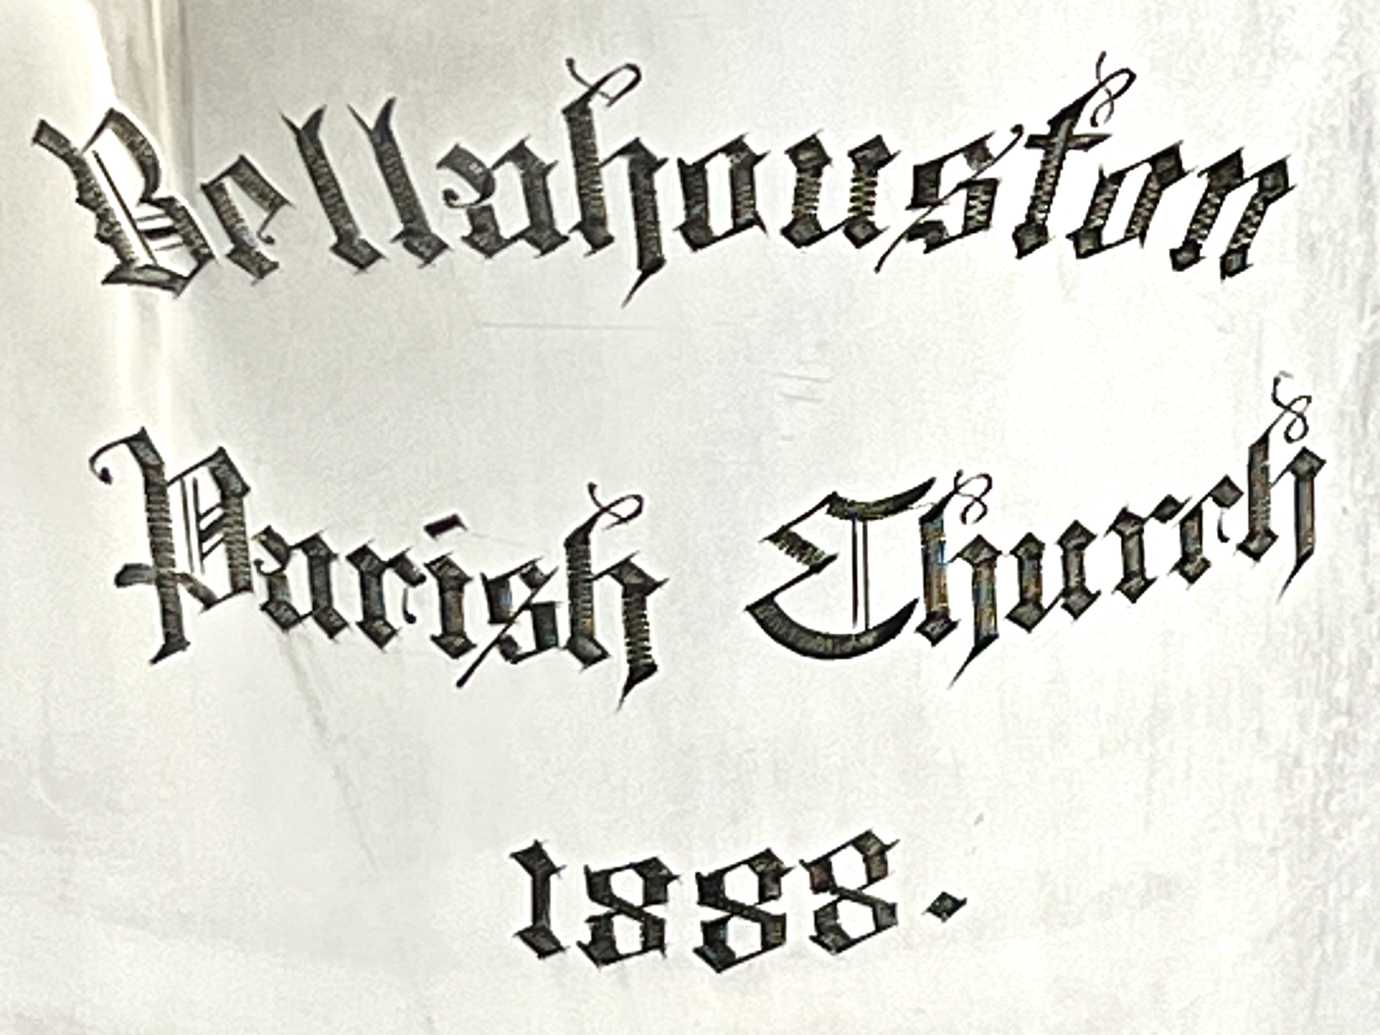 Bellahouston
Parish Church
1888.